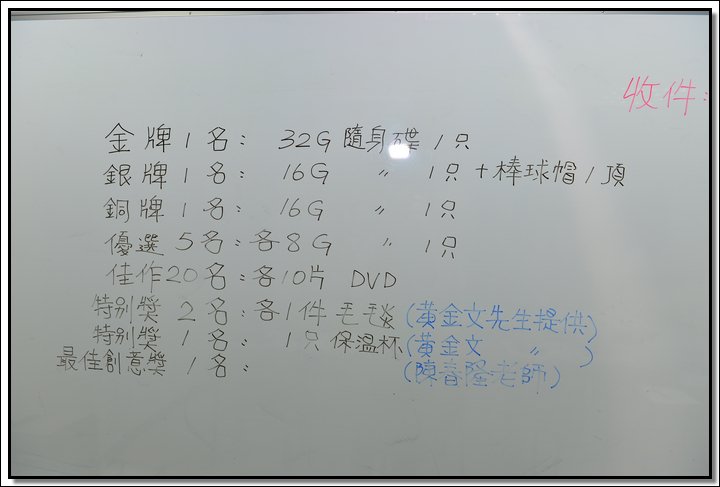 收件:
金牌1名: 32G 隨身碟 1只
銀牌1名: 16G 〃 1只+棒球帽1頂
銅牌1名: 16G 〃 1只
優選5名:各8G 〃 1只
佳作20名:各10片 DVD
特別獎2名:各1件毛毯(黃金文先生提供)
特別獎1名: 1只保溫杯(黃金文 〃 )
最佳創意獎1名: (陳春隆老師)